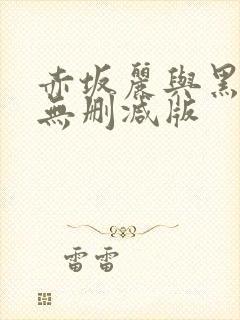 赤坂麗與黑
無删減版
雷雷